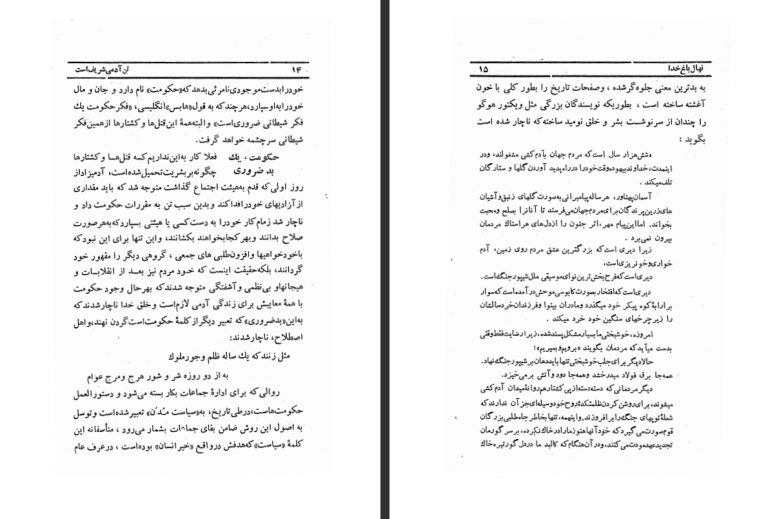 ۱۴ تن آدمی شریف است
خود را بدست موجودی نامرئی بدهد که «حکومت» نام دارد و جان و مال
خود را به او سپارد، هر چند که به قول «هابس» انگلیسی، «فکر حکومت یك
فکر شیطانی ضروری است» و البته همۀ این قتل‌ها و کشتارها از همین فکر
شیطانی سرچشمه خواهد گرفت.
حکومت، یك بد ضروری
فعلا کار به این نداریم که قتل‌ها و کشتارها
چگونه بر بشریت تحمیل شده است، آدمیزاد از
روز اولی که قدم به هیئت اجتماع گذاشت متوجه شد که باید مقداری
از آزادیهای خود را فدا کند و بدین سبب تن به مقررات حکومت داد و
ناچار شد زمام کار خود را به دست کسی یا هیئتی بسپارد که به هر صورت
صلاح بدانند و بهر کجا بخواهند بکشانند، و این تنها برای این نبود که
با خودخواهیها و افزون‌طلبی های جمعی، گروهی دیگر را مقهور خود
گردانند، بلکه حقیقت اینست که خود مردم نیز بعد از انقلابات و
هیجانها و بی‌نظمی و آشفتگی متوجه شدند که بهر حال وجود حکومت
با همۀ معایبش برای زندگی آدمی لازم است و خلق خدا ناچار شدند که
به این «بد ضروری» که تعبیر دیگر از کلمۀ حکومت است گردن نهند، و اهل
اصطلاح، ناچار شدند:
مثل زنند که یك ساله ظلم و جور ملوك
به از دو روزه شر و شور و هرج و مرج عوام
روالی که برای ادارۀ جماعات بکار بسته می‌شود و دستورالعمل
حکومت‌هاست، در طی تاریخ، به «سیاست مُدُن» تعبیر شده است و توسل
به اصول این روش ضامن بقای جماعات بشمار می‌رود، متأسفانه این
کلمۀ «سیاست» که هدفش در واقع «خیر انسان» بوده است، در عرف عام
نهال باغ خدا ۱۵
به بدترین معنی جلوه گر شده، و صفحات تاریخ را بطور کلی با خون
آغشته ساخته است، بطوریکه نویسندگان بزرگی مثل ویکتور هوگو
را چندان از سرنوشت بشر و خلق نومید ساخته که ناچار شده است
بگوید:
«شش هزار سال است که مردم جهان با آدم کشی مشغولند، و در
اینمدت، خداوند بیهوده وقت خود را در راه پدید آوردن گلها و ستارگان
تلف میکند.
آسمان پهناور، هر ساله پیامبرانی به صورت گلهای زنبق و آشیان
های زرین پرندگان برای مردم جهان می‌فرستد تا آنان را بسلح و محبت
بخواند. اما این پیام مهر، اثر جنون را از دلهای هراسناك مردمان
بیرون نمی‌برد.
زیرا دیری است که بزرگترین عشق مردم روی زمین، آدم
خواری و خونریزی است،
دیری است که فرح بخش‌ترین نوای موسیقی ملل شیپور جنگ است.
دیری است که افتخار بصورت کابوسی موحش در آمده است که سوار
بر ارابۀ کوه پیکر خود میگذرد و مادران بینوا و فرزندان خردسالشان
را زیر چرخهای سنگین خود خرد میکند.
امروزه، خوشبختی ما بسیار مشکل پسند شده، زیرا رضایت فقط وقتی
بدست میآید که مردمان بگویند «برویم و بمیریم»؛
حالا دیگر برای جلب خوشبختی تنها باید دهان بر شیپور جنگ نهاد.
همه‌جا برق فولاد میدرخشد و همه‌جا دود و آتش بر می‌خیزد.
دیگر مردمانی که دسته دسته از پی کشتار هم دوانند امید آدم کشی
میشوند، برای روشن کردن ظلمتکدۀ روح خود وسیله‌ای جز آن ندارند که
شعلۀ توپهای جنگ را بر افروزند. و اینهمه، تنها بخاطر جاه‌طلبی بزرگان
قوم صورت می‌گیرد که خود آنها هنوز ما را در خاك نکرده، بر سر گورمان
تجدید عهد مودت می‌کنند، و در آن هنگام که کالبد ما در دل گور تیره خاك